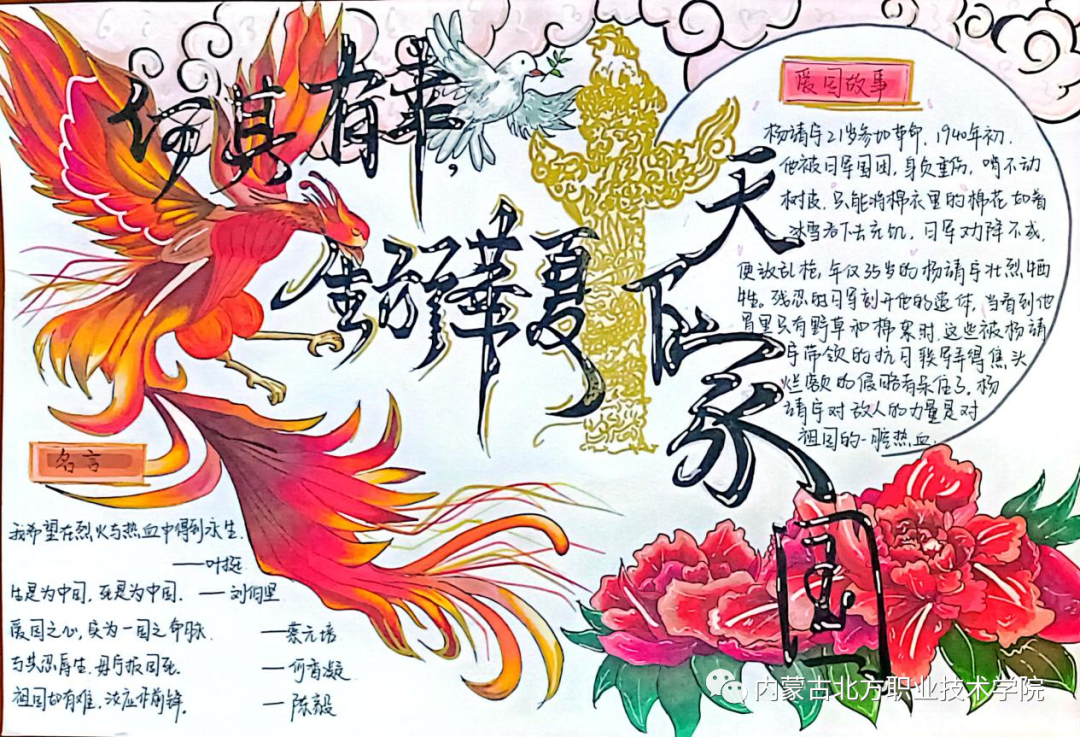 何其有幸，
生于華夏
天下家国
爱国故事
杨靖宇21岁参加革命，1940年初，
他被日军围困，身负重伤，啃不动
树皮，只能将棉衣里的棉花和着
冰雪吞下去充饥，日军劝降不成，
便放乱枪，年仅35岁的杨靖宇壮烈牺
牲。残忍的日军剖开他的遗体，当看到他
胃里只有野草和棉絮时，这些被杨靖
宇带领的抗日联军弄得焦头
烂额的侵略者呆住了。杨
靖宇对敌人的力量是对
祖国的一腔热血。
名言
我希望在烈火与热血中得到永生。
——叶挺
生是为中国，死是为中国。——刘伯坚
爱国之心，实为一国之命脉。——蔡元培
与其忍辱生，毋宁报国死。——何香凝
祖国如有难，汝应作前锋。——陈毅
内蒙古北方职业技术学院